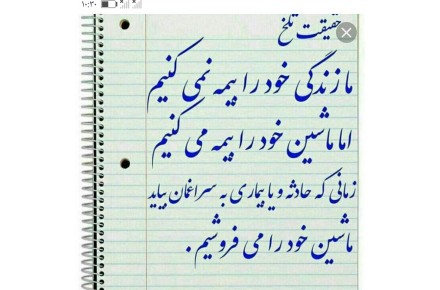 ۱۰:۲۰
حقیقت تلخ
ما زندگی خود را بیمه نمی کنیم
اما ماشین خود را بیمه می کنیم
زمانی که حادثه و یا بیماری به سراغمان بیاید
ماشین خود را می فروشیم .